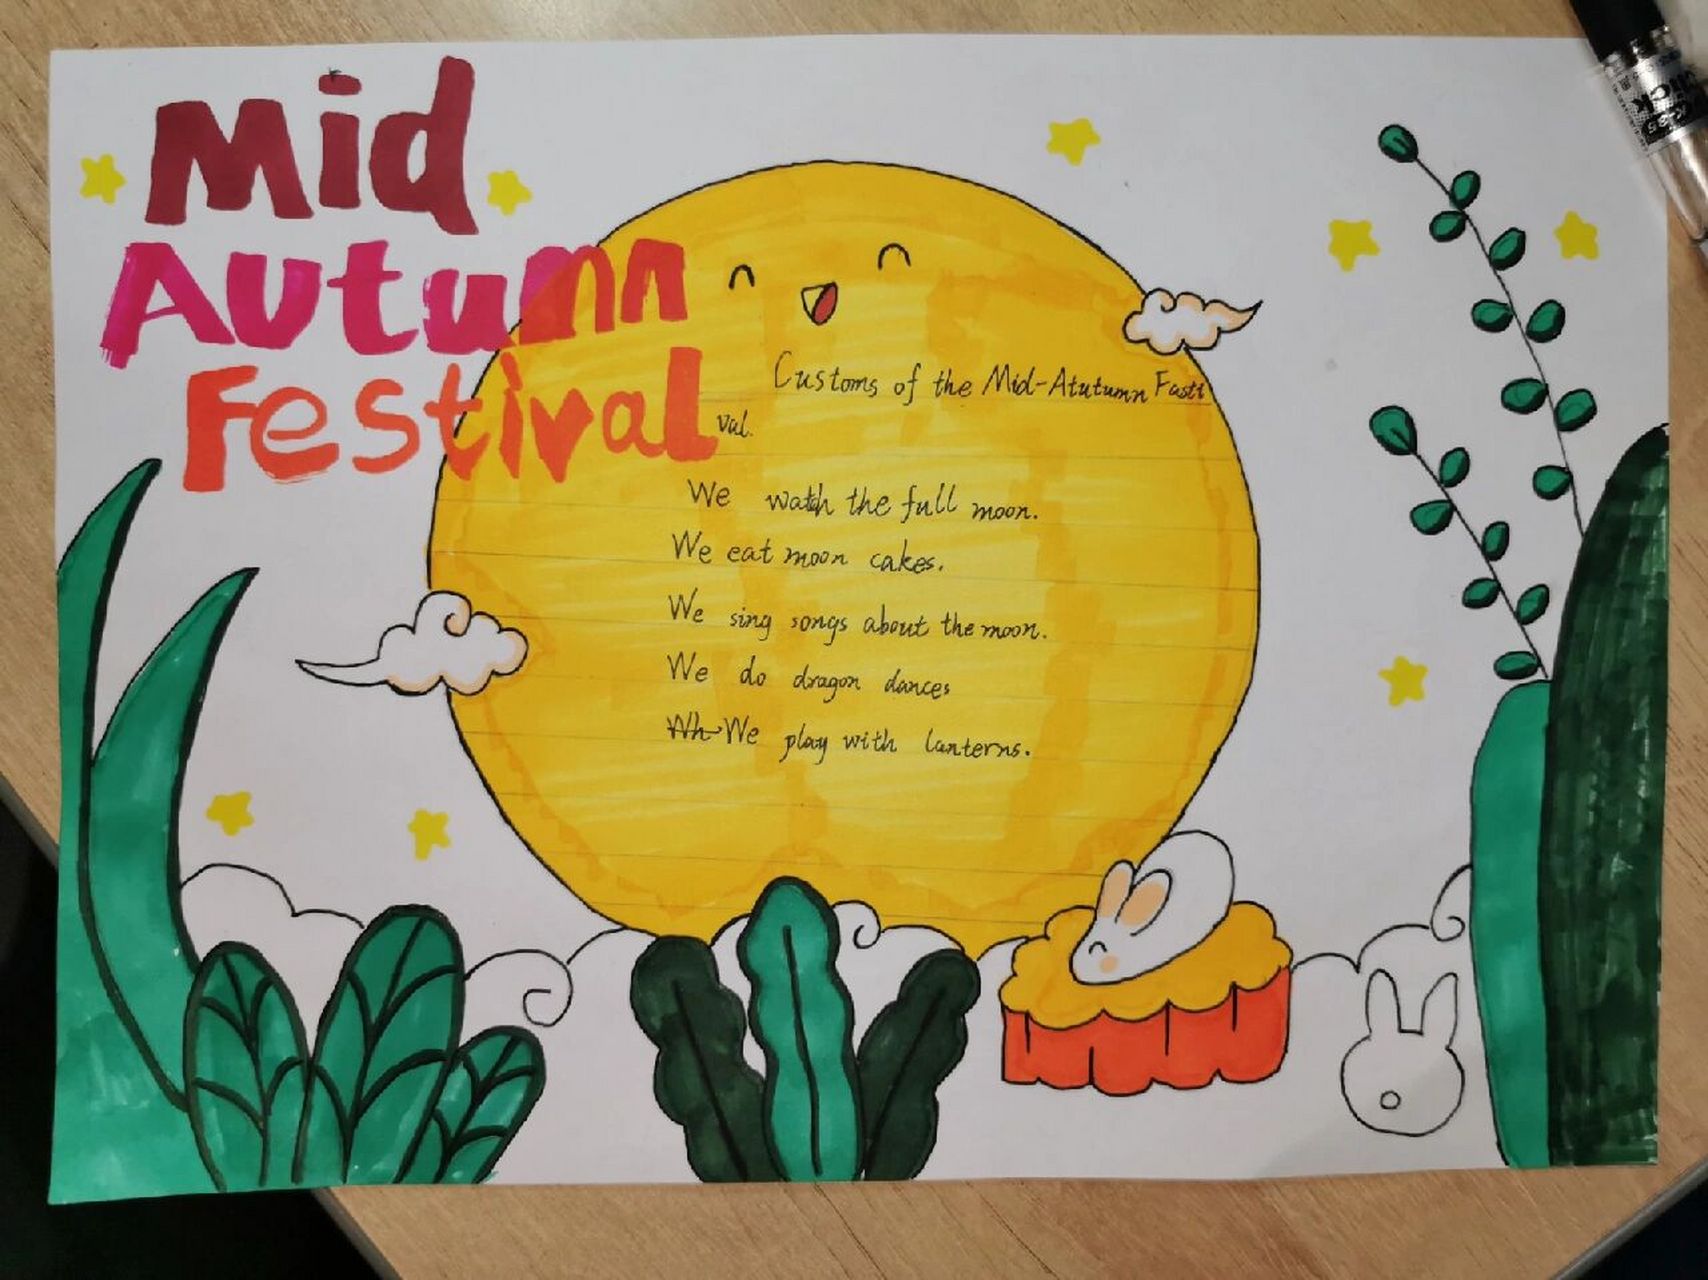 Mid
Autumn
Festival
Customs of the Mid-Atutumn Fasti
val.
We watch the full moon.
We eat moon cakes.
We sing songs about the moon.
We do dragon dances
Wh We play with lanterns.